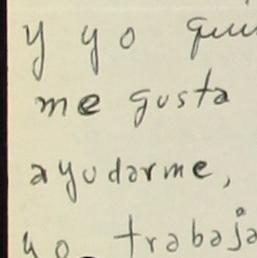 y yo
me gusta
ayudarme,
yo trabaja